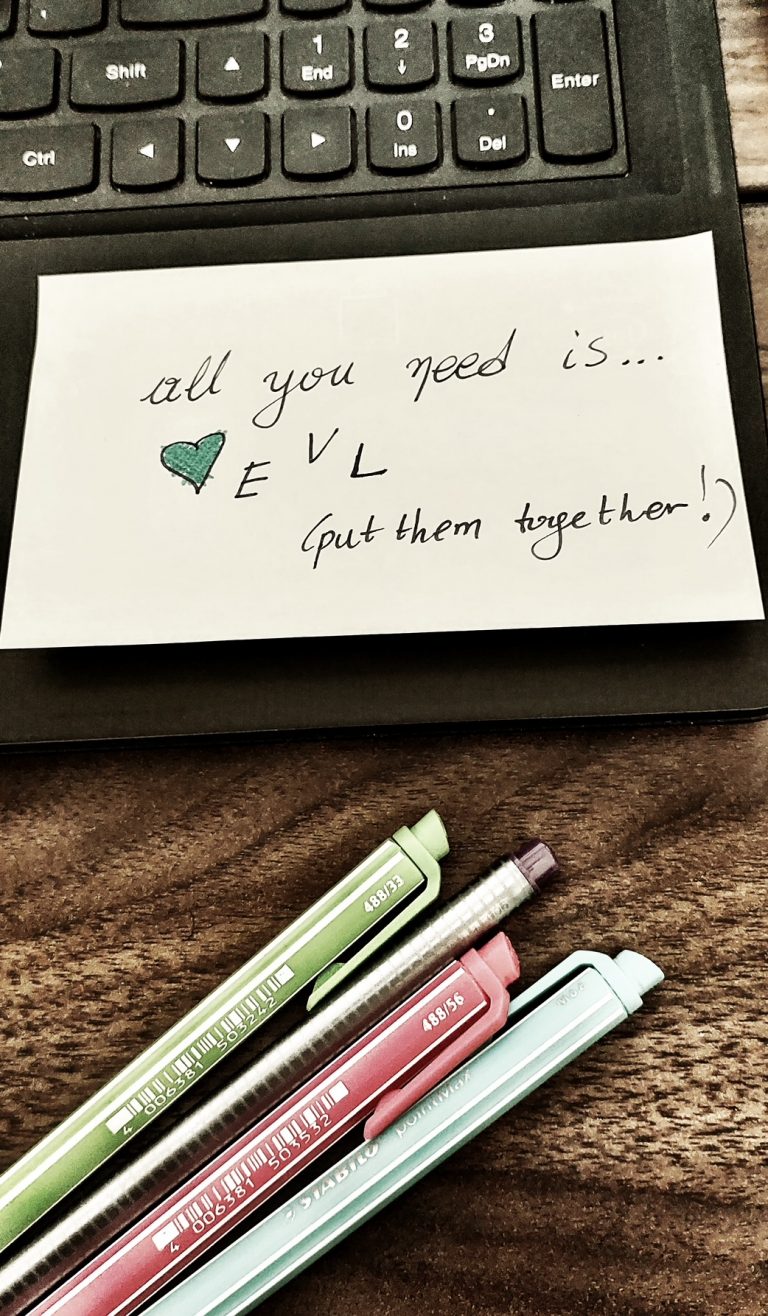 Shift ▲ 1 End 2 ↓ 3 PgDn Enter
Ctrl ◄ ▼ ► 0 Ins . Del
all you need is...
E V L
(put them together!)
488/33
4 006381 503242
488/56
4 006381 503532
STABILO pointMax